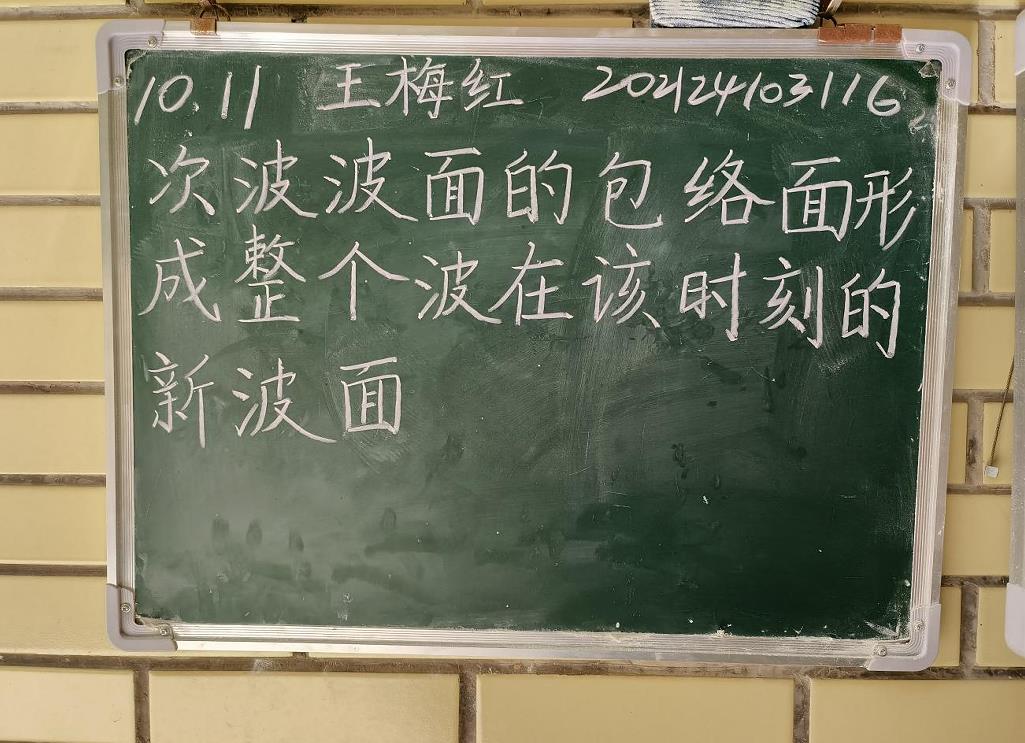 10.11 王梅红 202124103116
次波波面的包络面形
成整个波在该时刻的
新波面